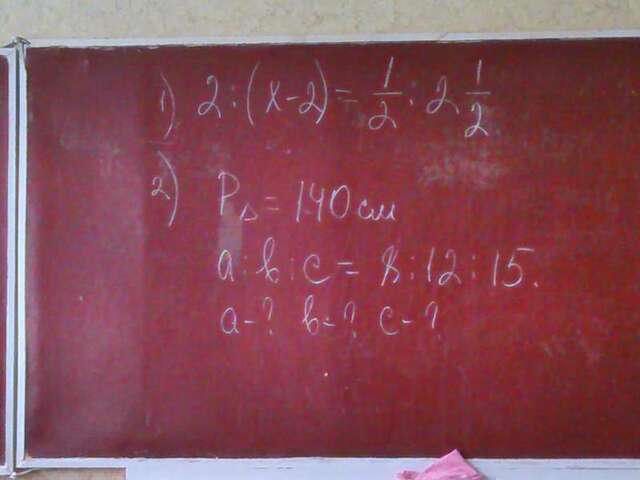 1) 2 : (x-2) = 1/2 : 2 1/2
2) P△ = 140 см
a : b : c = 8 : 12 : 15.
a - ? b - ? c - ?